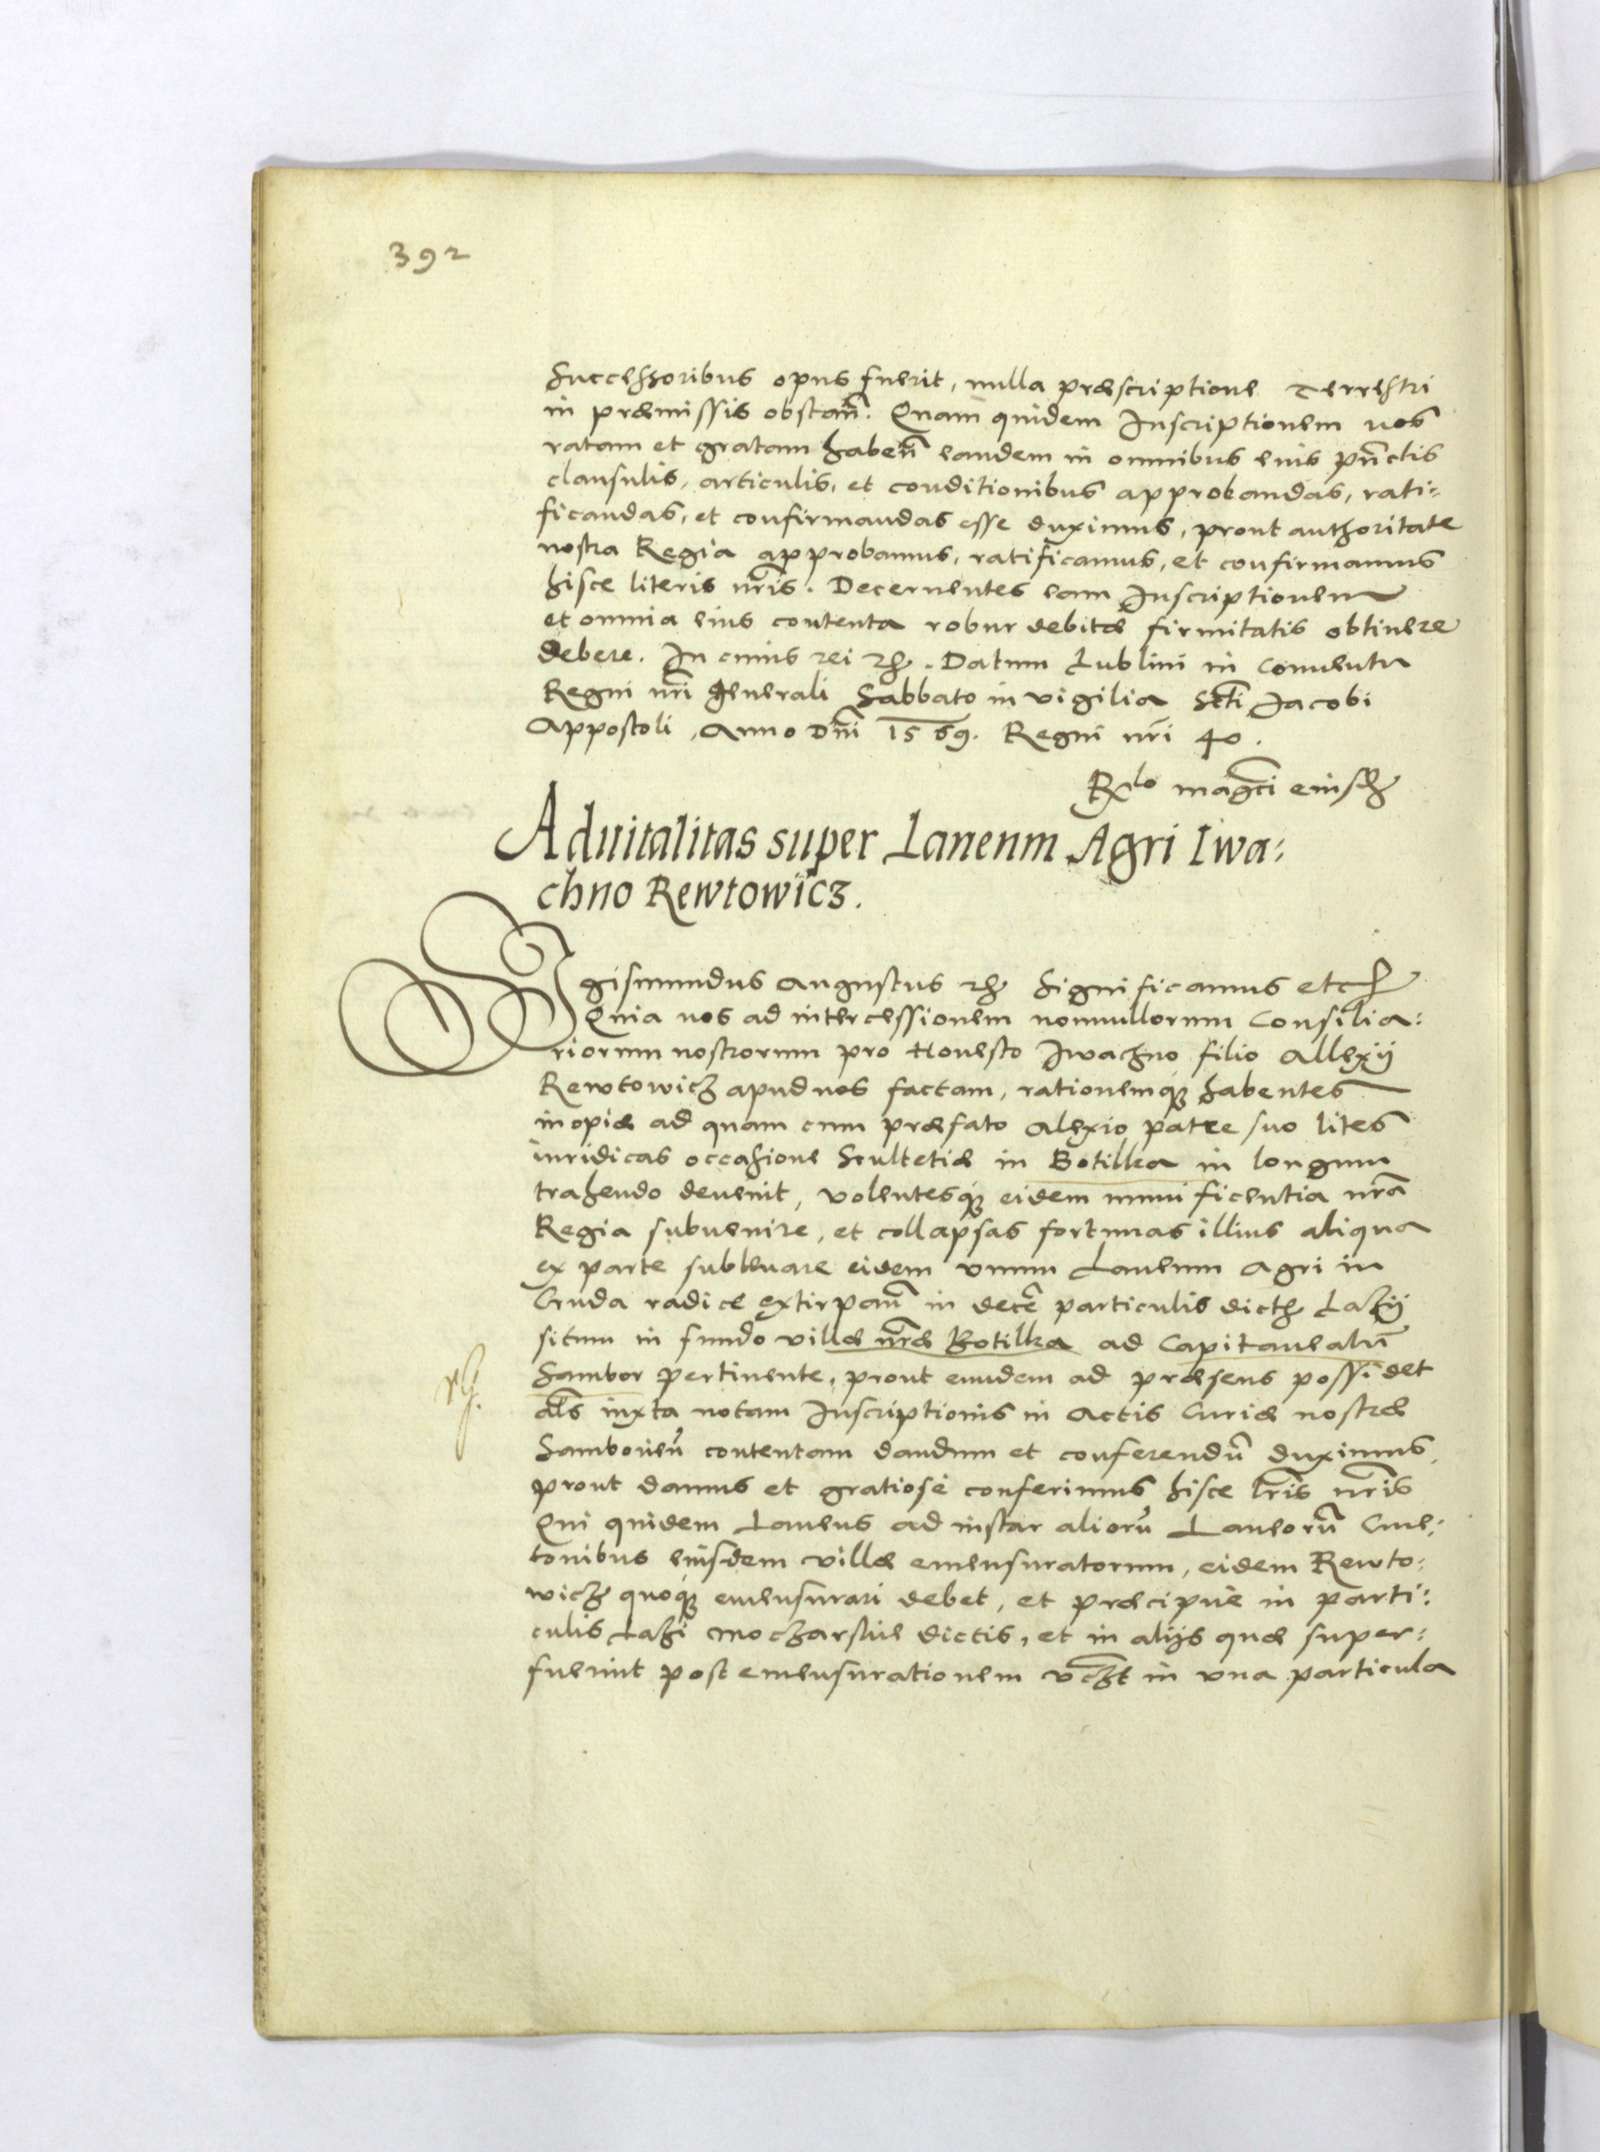 392
Successoribus opus fuerit, nulla præscriptione Terrestri
in præmissis obstañ. Quam quidem Inscriptionem nos
ratam et gratam habeñ eandem in omnibus eius pũctis
clausulis, articulis, et conditionibus approbandas, rati=
ficandas, et confirmandas esse duximus, prout authoritate
nostra Regia approbamus, ratificamus, et confirmamus
hisce literis nr̃is. Decernentes eam Inscriptionem
et omnia eius contenta robur debitæ firmitatis obtinere
debere. In cuius rei etc. Datum Lublini in Conuentu
Regni nr̃i generali Sabbato in vigilia Scti Jacobi
Appostoli, Anno Dñi 1569. Regni nr̃i 40.
Rlo magci eiusd
Aduitalitas super Laneum Agri Iwa=
chno Rewtowicz.
Sigismundus Augustus etc Significamus etc
Quia nos ad intercessionem nonnullorum Consilia=
riorum nostrorum pro Honesto Iwachno filio Allexij
Rewtowicz apud nos factam, rationemq habentes
inopiæ ad quam cum præfato Alexio patre suo lites
iuridicas occasione Scultetiæ in Botilka in longum
trahendo deuenit, volentesq eidem munificentia nr̃a
Regia subuenire, et collapsas fortunas illius aliqua
ex parte subleuare eidem vnum Laneum Agri in
Cruda radice extirpañ in decē particulis dicth Lazij
situm in fundo villæ nr̃æ Botilka ad Capitaneatũ
Sambor pertinente, prout eundem ad præsens possidet
als iuxta notam Inscriptionis in Actis Curiæ nostræ
Samborieñ contentam dandum et conferendũ duximus,
prout damus et gratiosè conferimus hisce lr̃is nr̃is
Qui quidem Laneus ad instar aliorũ Laneorũ Cme=
tonibus eiusdem villæ emensuratorum, eidem Rewto=
wicz quoq emensurari debet, et præcipuè in parti=
culis Lazi Moczarskie dictis, et in alijs quæ super=
fuerint post emensurationem vczt in vna particula